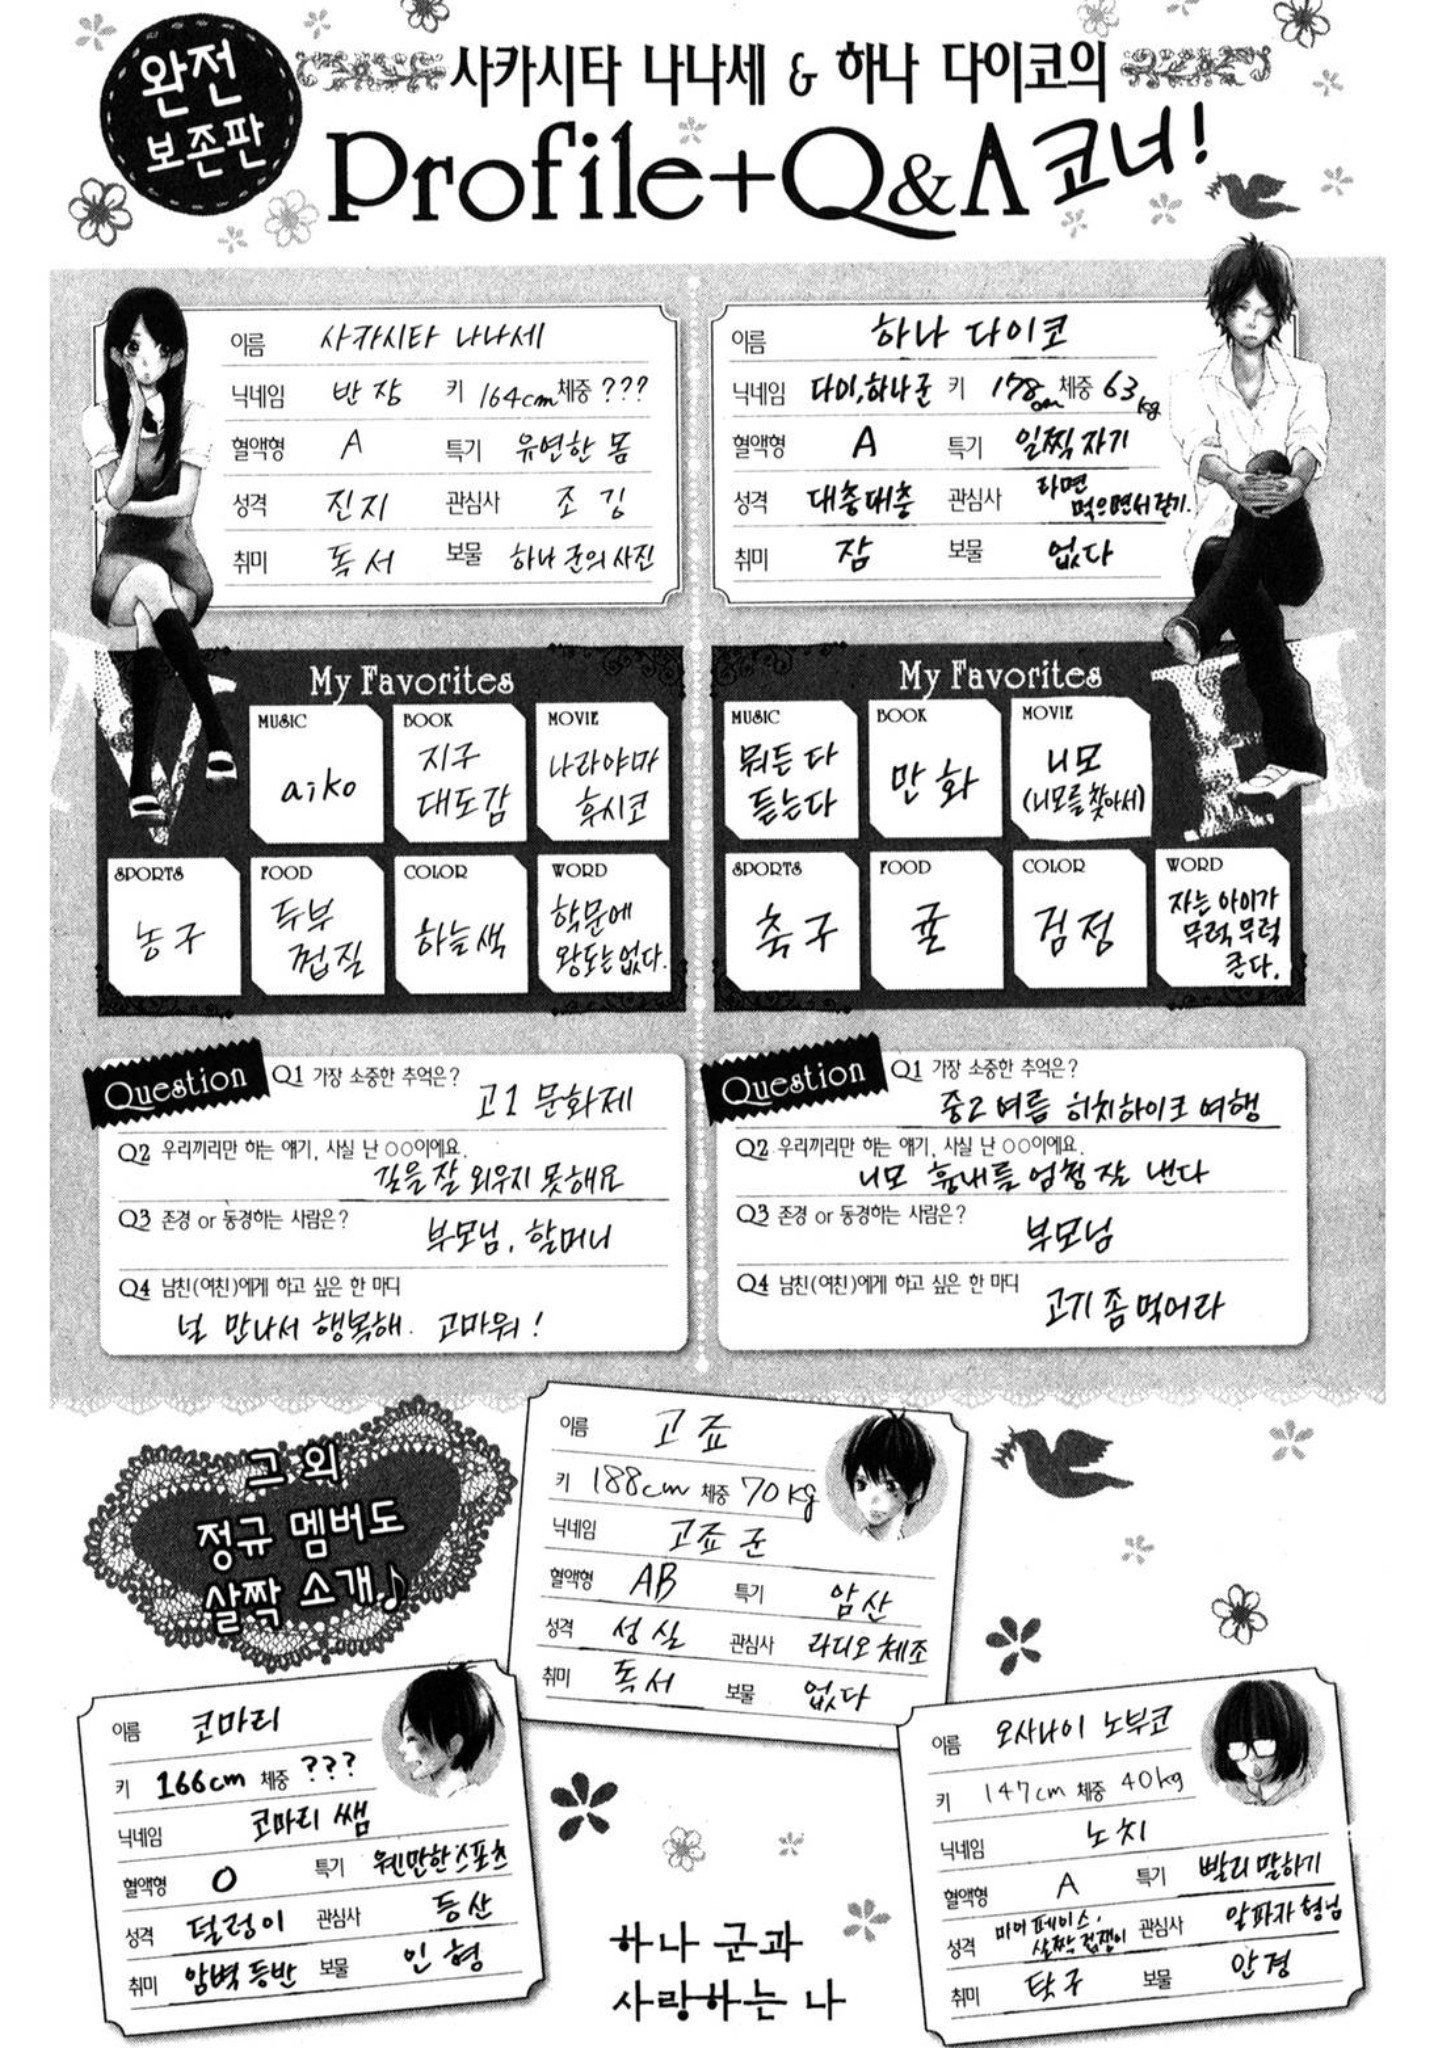 완전
보존판
사카시타 나나세 & 하나 다이코의
Profile+Q&A 코너!
이름 사카시타 나나세
닉네임 반장 키 164cm 체중 ???
혈액형 A 특기 유연한 몸
성격 진지 관심사 조깅
취미 독서 보물 하나 군의 사진
My Favorites
MUSIC
aiko
BOOK
지구
대도감
MOVIE
나라야마
후시코
SPORTS
농구
FOOD
두부
껍질
COLOR
하늘색
WORD
학문에
왕도는 없다.
Question Q1 가장 소중한 추억은?
고1 문화제
Q2 우리끼리만 하는 얘기, 사실 난 ○○이에요.
길을 잘 외우지 못해요
Q3 존경 or 동경하는 사람은?
부모님, 할머니
Q4 남친(여친)에게 하고 싶은 한 마디
널 만나서 행복해. 고마워!
이름 하나 다이코
닉네임 다이, 하나 군 키 178cm 체중 63kg
혈액형 A 특기 일찍 자기
성격 대충대충 관심사 라면
먹으면서 걷기.
취미 잠 보물 없다
My Favorites
MUSIC
뭐든 다
듣는다
BOOK
만화
MOVIE
니모
(니모를 찾아서)
SPORTS
축구
FOOD
귤
COLOR
검정
WORD
자는 아이가
무럭무럭
큰다.
Question Q1 가장 소중한 추억은?
중2 여름 히치하이크 여행
Q2 우리끼리만 하는 얘기, 사실 난 ○○이에요.
니모 흉내를 엄청 잘 낸다
Q3 존경 or 동경하는 사람은?
부모님
Q4 남친(여친)에게 하고 싶은 한 마디
고기 좀 먹어라
그 외
정규 멤버도
살짝 소개♪
이름 고죠
키 188cm 체중 70kg
닉네임 고죠 군
혈액형 AB 특기 암산
성격 성실 관심사 라디오 체조
취미 독서 보물 없다
이름 코마리
키 166cm 체중 ???
닉네임 코마리 쌤
혈액형 O 특기 웬만한 스포츠
성격 덜렁이 관심사 등산
취미 암벽 등반 보물 인형
이름 오사나이 노부코
키 147cm 체중 40kg
닉네임 노치
혈액형 A 특기 빨리 말하기
성격 마이 페이스,
살짝 겁쟁이 관심사 알파자 형님
취미 탁구 보물 안경
하나 군과
사랑하는 나